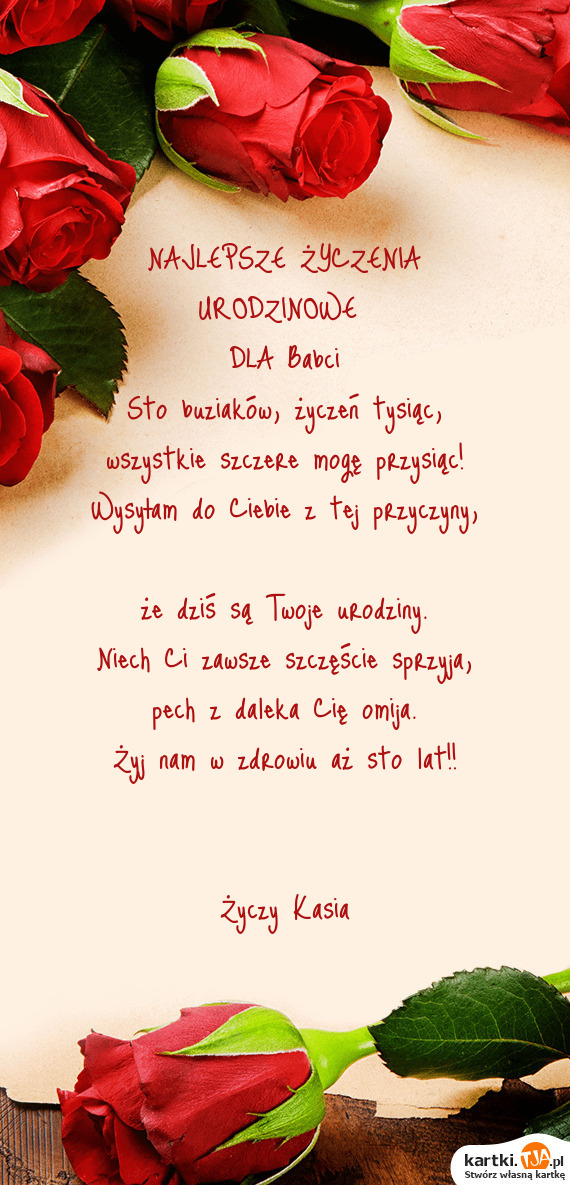 NAJLEPSZE ŻYCZENIA
URODZINOWE
DLA Babci
Sto buziaków, życzeń tysiąc,
wszystkie szczere mogę przysiąc!
Wysyłam do Ciebie z tej przyczyny,
że dziś są Twoje urodziny.
Niech Ci zawsze szczęście sprzyja,
pech z daleka Cię omija.
Żyj nam w zdrowiu aż sto lat!!
Życzy Kasia
kartki.TJA.pl
Stwórz własną kartkę